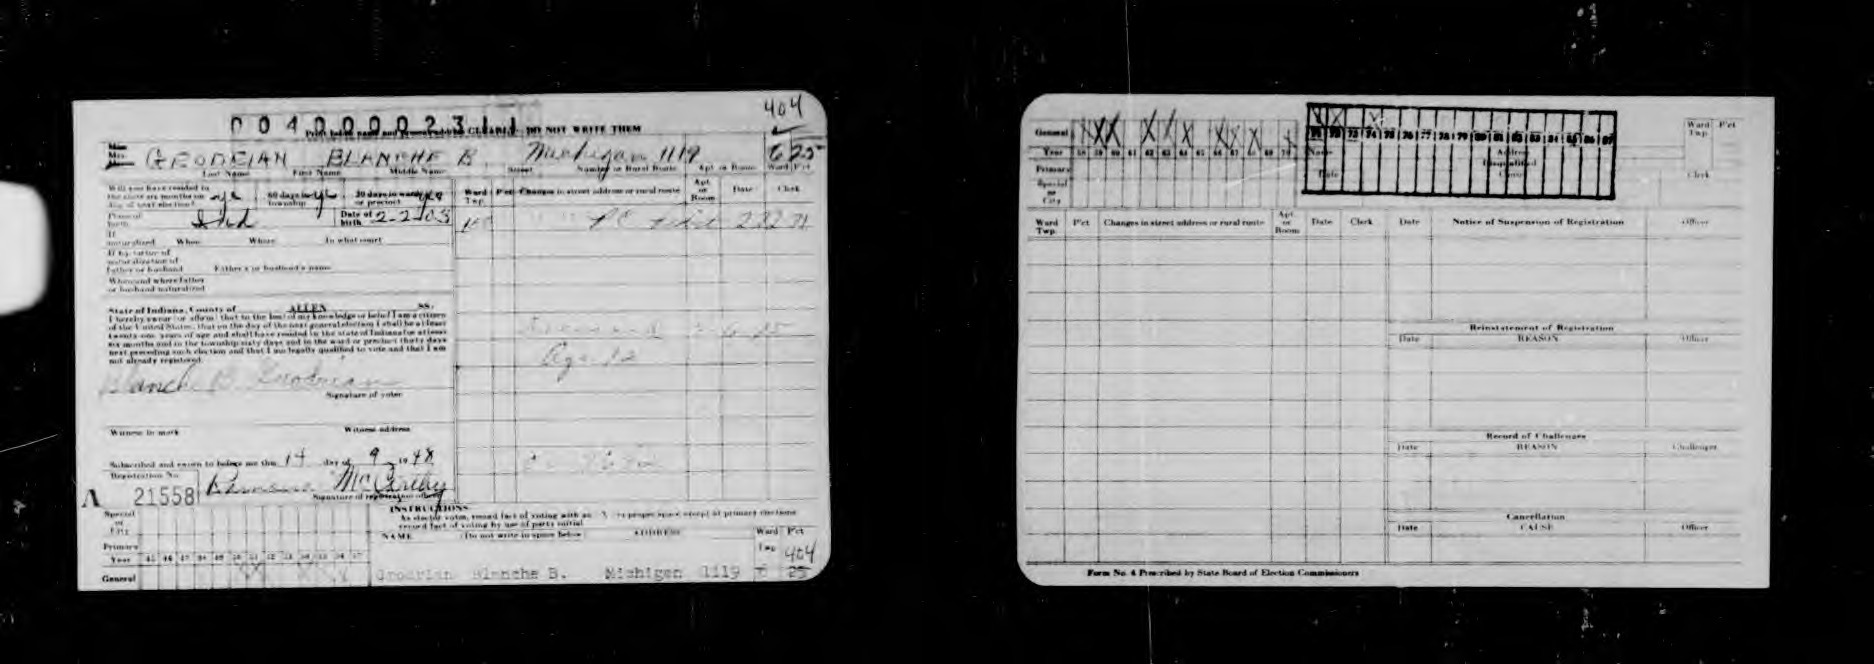 404
004000023
CLEARLY DO NOT WRITE THEM
BLANCHE B. Michigan 1119 6 25
Last Name First Name Middle Name Street Number or Rural Route Apt. or Room Ward P'ct
Will you have resided in
the state six months on
day of next election?
60 days in township
30 days in ward or precinct
Ward Twp. P'ct Changes in street address or rural route Apt. or Room Date Clerk
Place of birth Ind Date of birth 2-2-03
If naturalized When Where In what court
If by virtue of
naturalization of
father or husband Father's or husband's name
When and where father
or husband naturalized
State of Indiana, County of ALLEN SS:
I hereby swear (or affirm) that to the best of my knowledge or belief I am a citizen
of the United States, that on the day of the next general election I shall be at least
twenty-one years of age and shall have resided in the state of Indiana for at least
six months and in the township sixty days and in the ward or precinct thirty days
next preceding such election and that I am legally qualified to vote and that I am
not already registered.
Blanche B.
Signature of voter
Witness to mark Witness address
Subscribed and sworn to before me this 14 day of 9 1948
Registration No.
A 21558 McCarthy
Signature of registration officer
INSTRUCTIONS
As elector votes, record fact of voting with an X in proper space except at primary elections
record fact of voting by use of party initial
Special or City
NAME (Do not write in space below) ADDRESS Ward Twp P'ct
Primary
Year
404
General
Blanche B. Michigan 1119 6 25
General
Year 58 59 60 61 62 63 64 65 66 67 68 69 70
Primary
Special or City
71 72 73 74 75 76 77 78 79 80 81 82 83 84 85 86 87
Name
Address
Disqualified
Date Cause Clerk
Ward Twp. P'ct
Ward Twp. P'ct Changes in street address or rural route Apt. or Room Date Clerk Date Notice of Suspension of Registration Officer
Reinstatement of Registration
Date REASON Officer
Record of Challenges
Date REASON Challenger
Cancellation
Date CAUSE Officer
Form No. 4 Prescribed by State Board of Election Commissioners